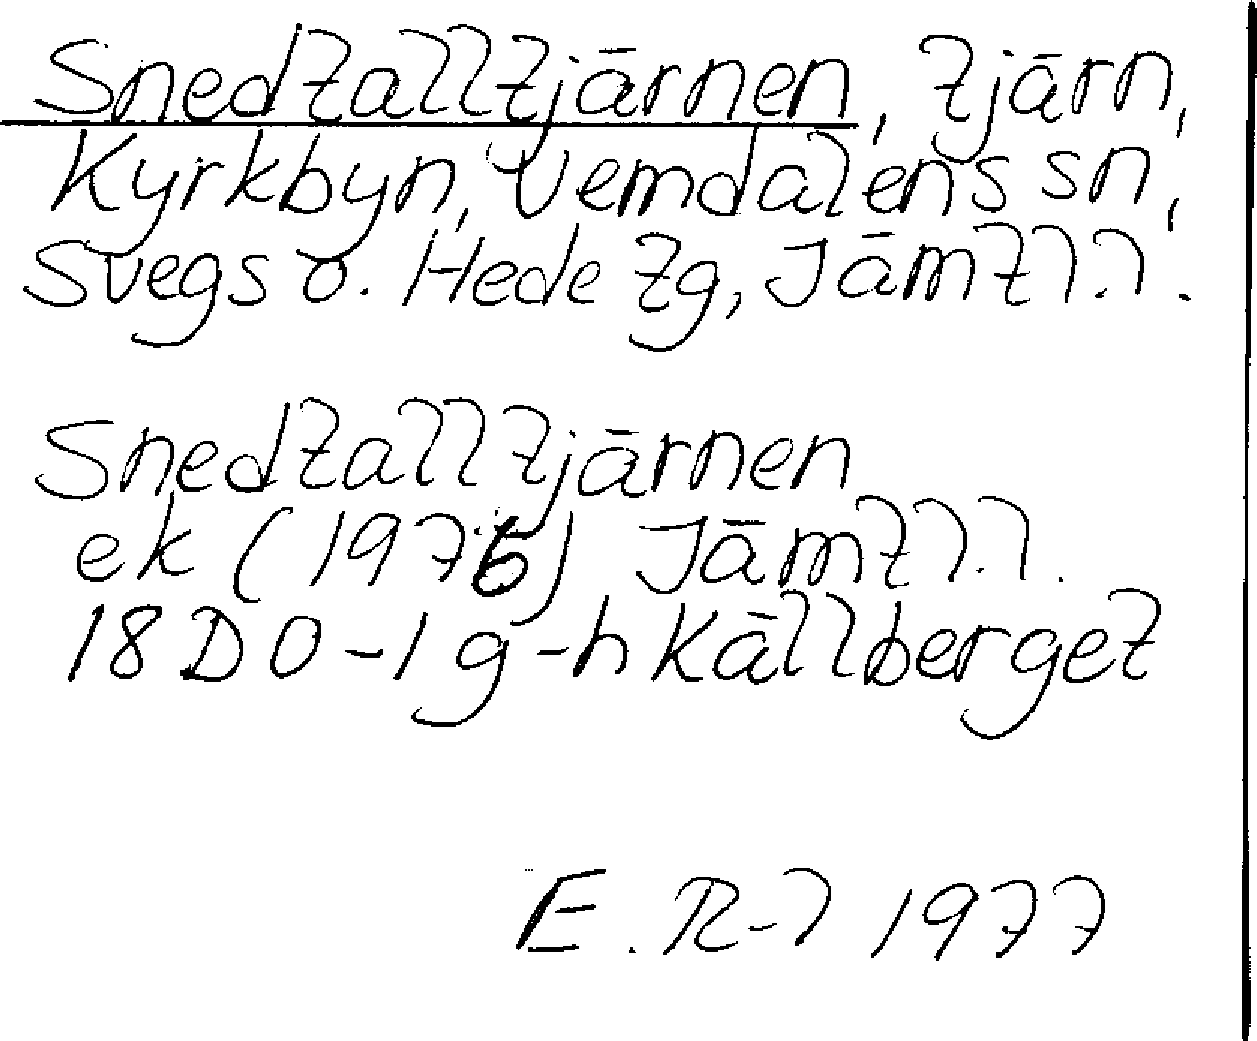 Snedtalltjärnen, tjärn,
Kyrkbyn, Vemdalens sn,
Svegs o. Hede tg, Jämtl.l.
Snedtalltjärnen
ek (1976) Jämtl.l.
18D 0-1 g-h Källberget
E. R-l 1977